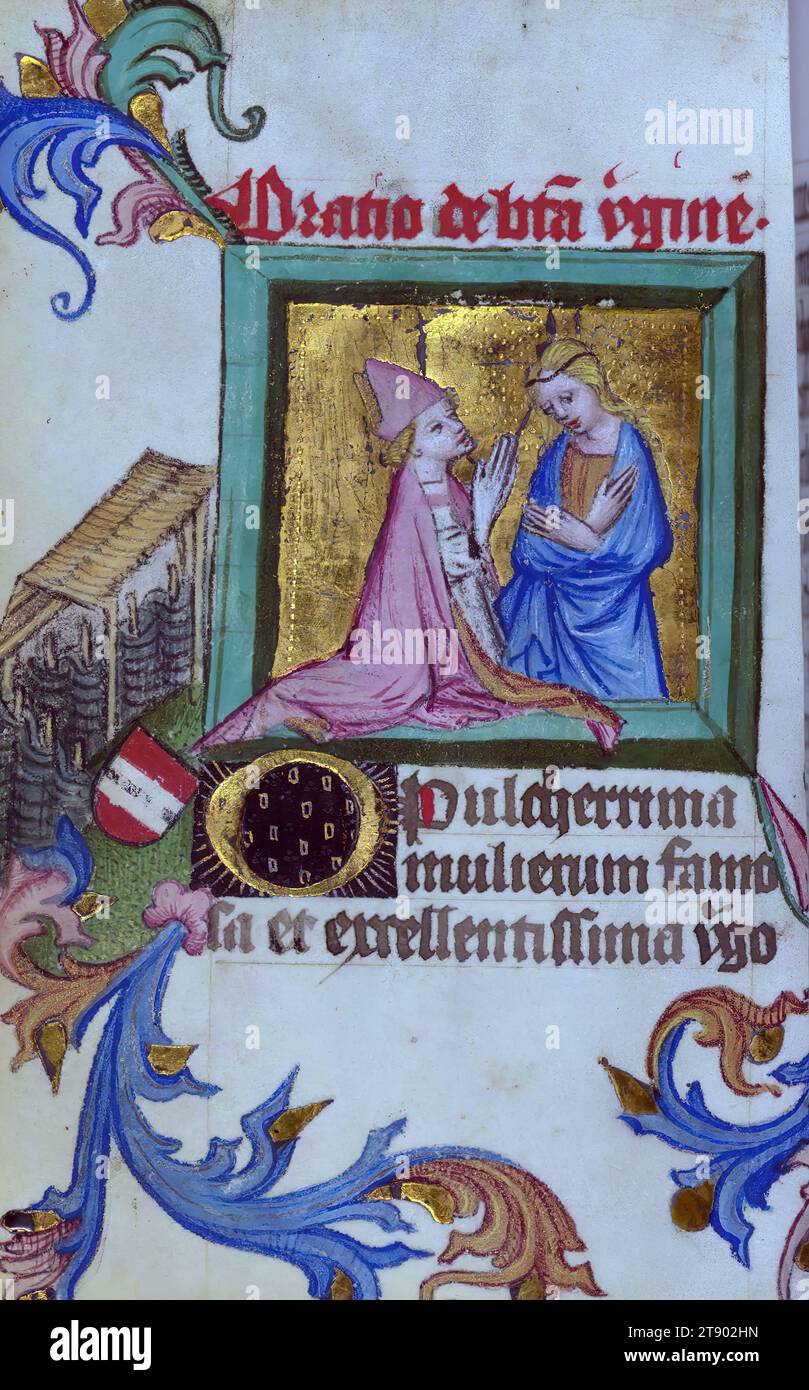 Oratio de bt̄a v̇gine.
O Pulcherrima
mulierum famo
sa et excellentissima v̇go
alamy
Image ID: 2T902HN
www.alamy.com